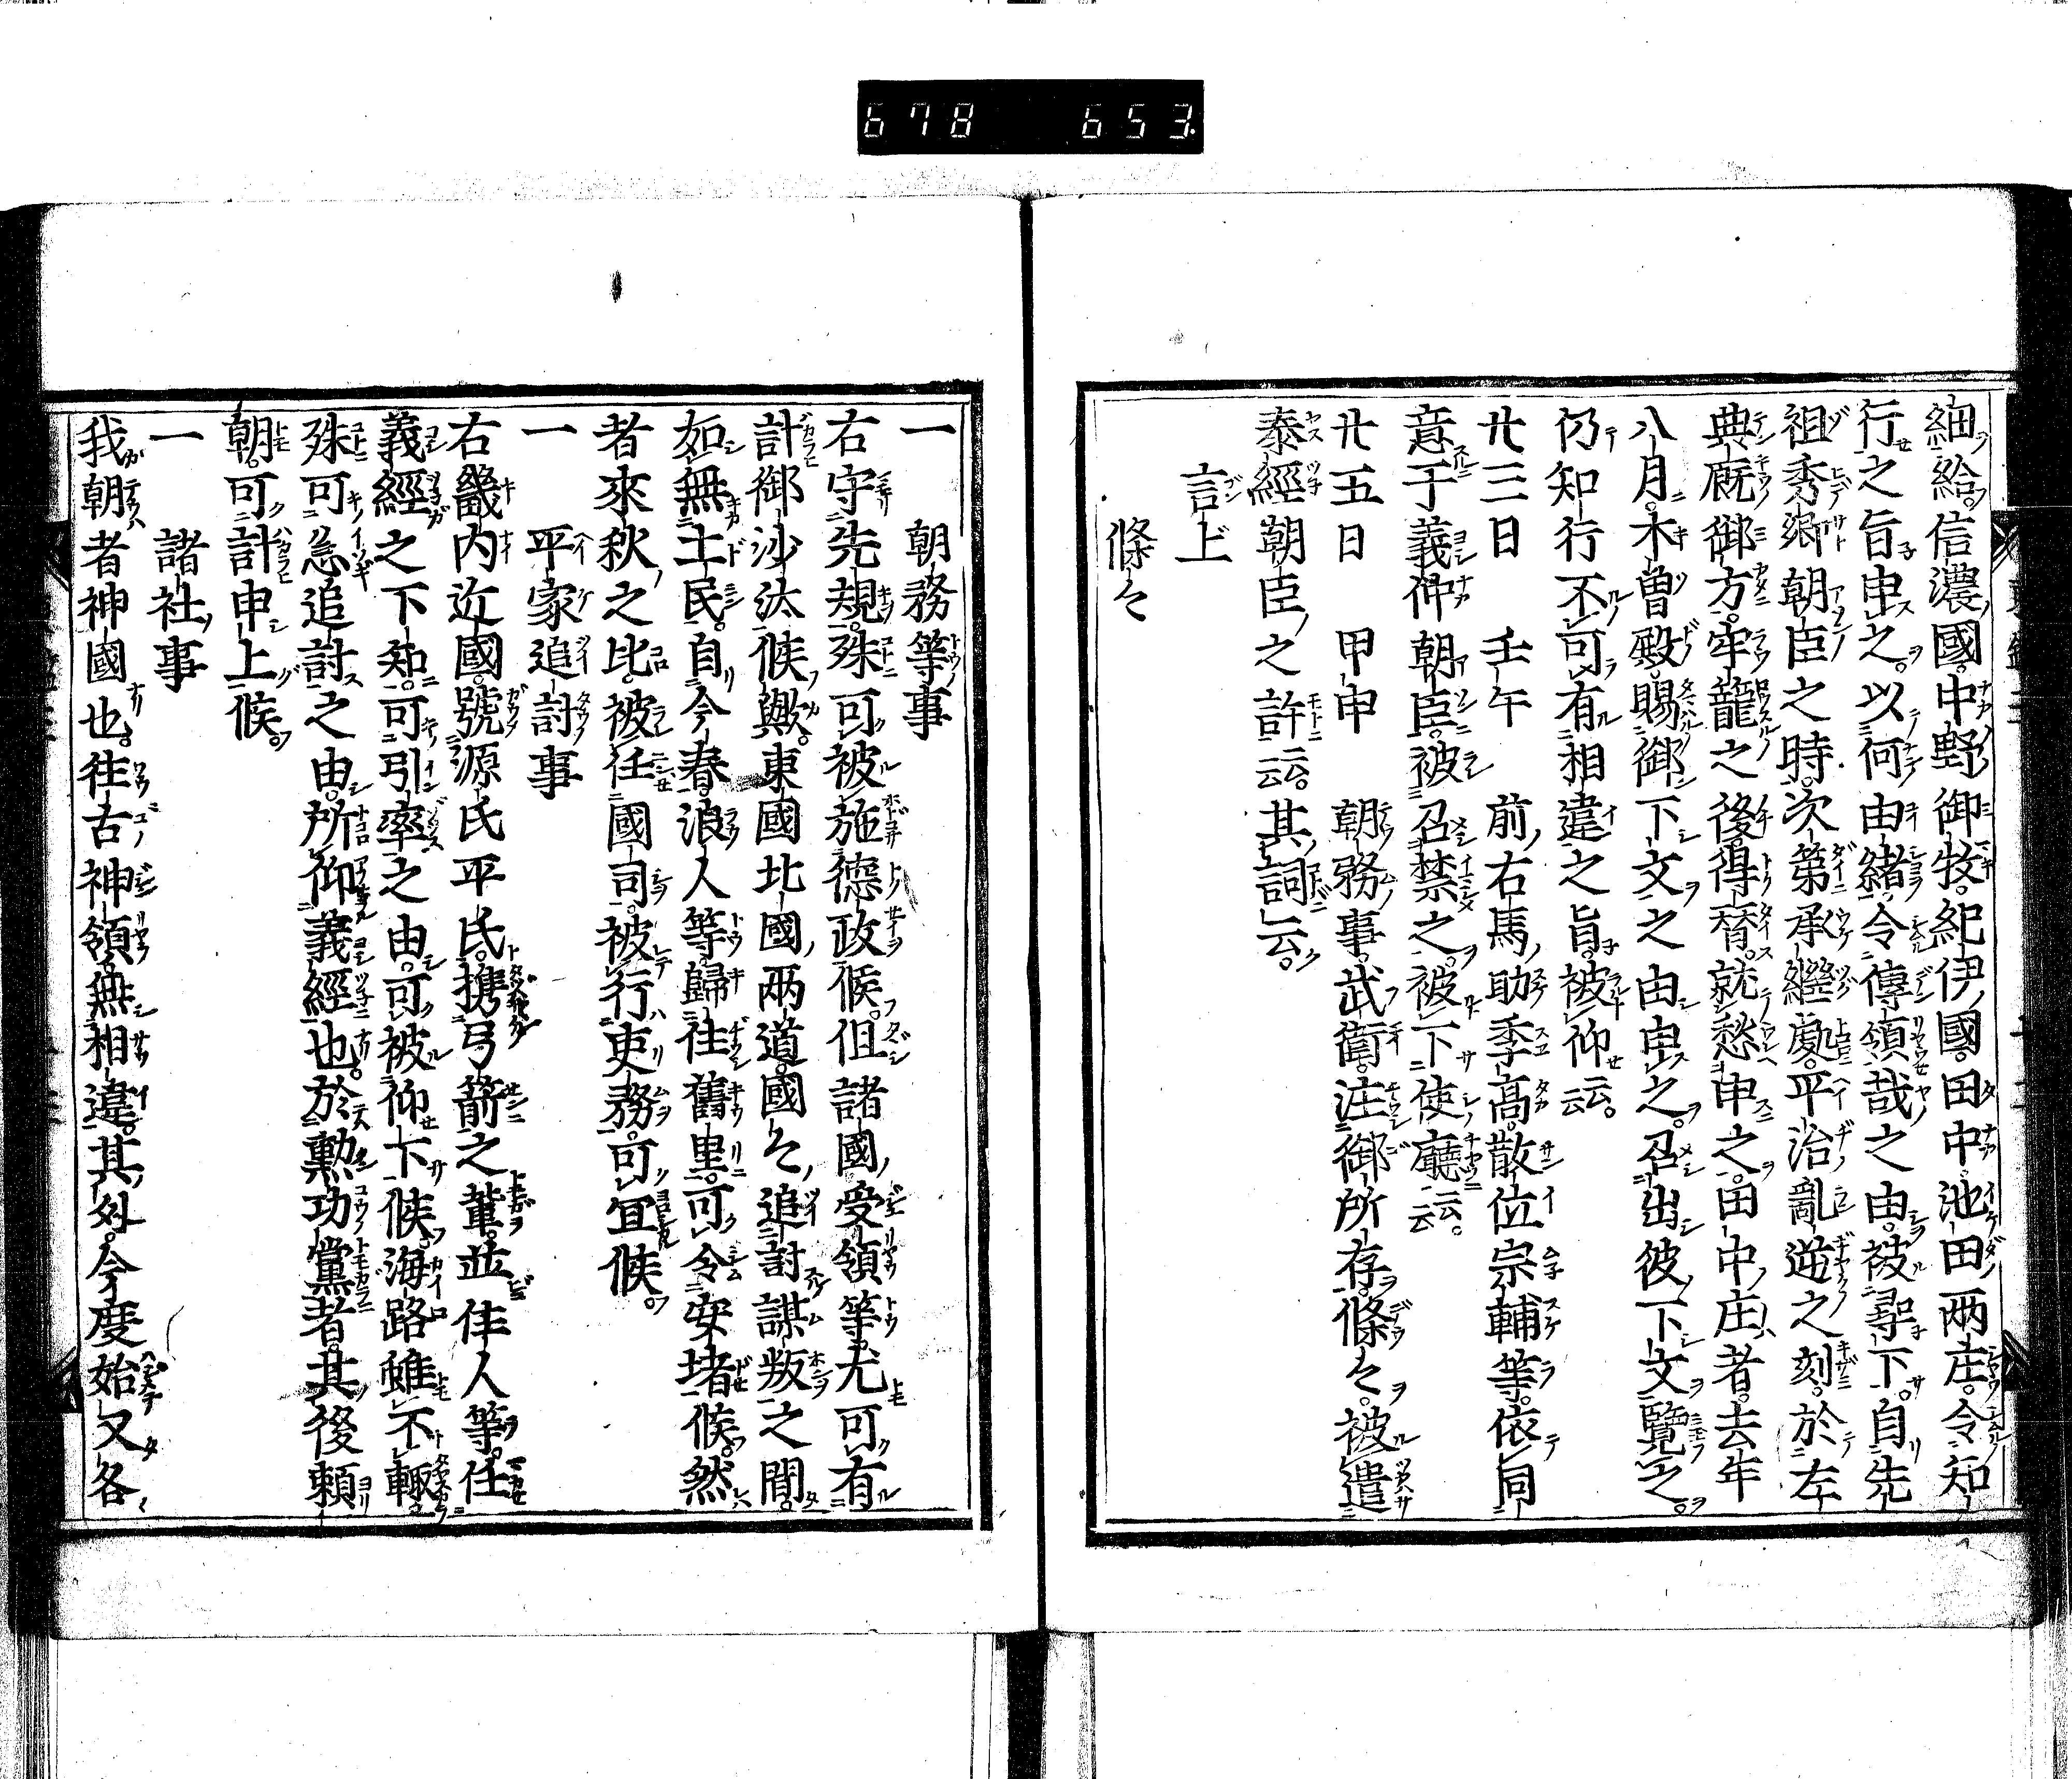 678 653.
細給。信濃國。中野御牧。紀伊國。田中。池田兩庄。令知
行之旨申之。以何由緒。令傳領哉之由。被尋下。自先
祖秀郷朝臣之時。次第承繼處。平治亂逆之刻。於左
典厩御方。牢籠之後得替。就愁申之。田中庄者。去年
八月。木曾殿。賜御下文之由申之。召出彼下文覽之。
仍知行不可有相違之旨。被仰云云。
廿三日 壬午 前右馬助季高。散位宗輔等。依同
意于義仲朝臣。被召禁之。被下使廳云云。
廿五日 甲申 朝務事。武衛注御所存條々。被遣
泰經朝臣之許云云。其詞云。
言上
條々
一 朝務等事
右守先規。殊可被施德政候。但諸國受領等尤可有
計御沙汰候歟。東國北國兩道國々追討謀叛之間。
如無土民。自今春。浪人等歸往舊里。可令安堵候。然
者來秋之比。被任國司。被行吏務。可宜候。
一 平家追討事
右畿内近國。號源氏平氏。携弓箭之輩。並住人等。任
義經之下知。可引率之由。可被仰下候。海路雖不輙
殊可急追討之由。所仰義經也。於勲功黨者。其後頼
朝。可計申上候。
一 諸社事
我朝者神國也。往古神領無相違。其外。今度始又各